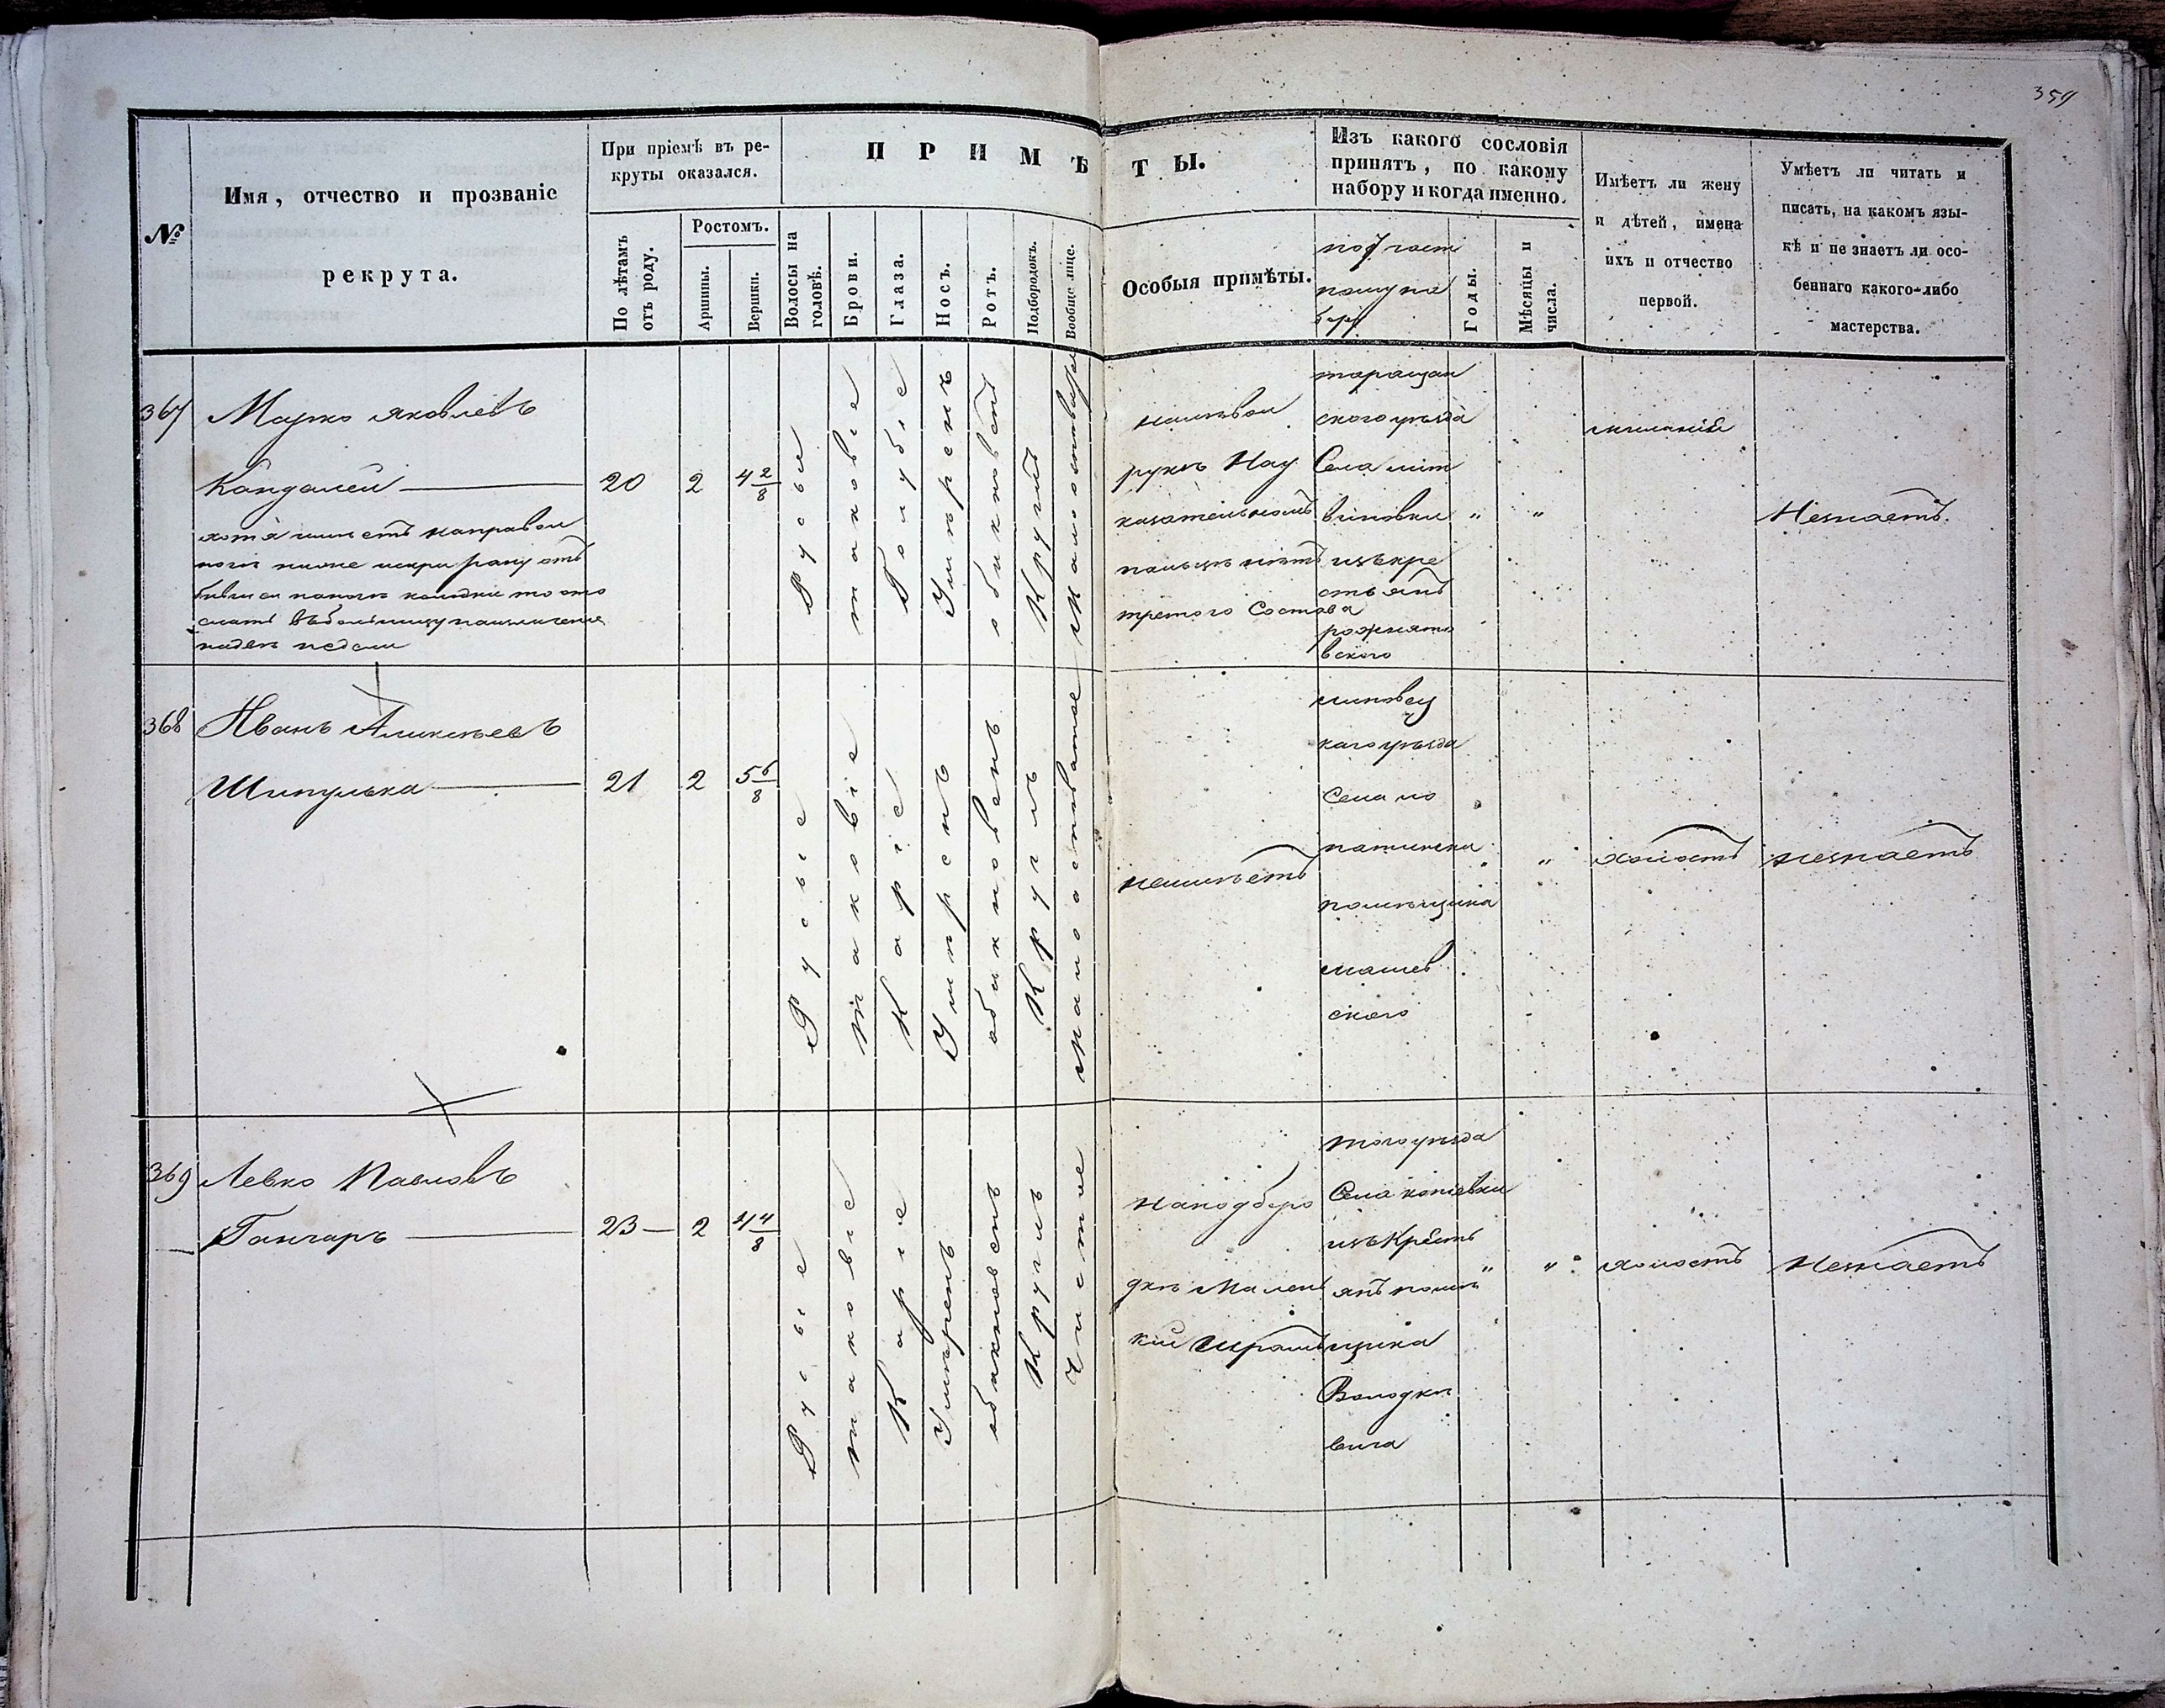 359
№
Имя, отчество и прозваніе
рекрута.
При пріемѣ въ ре-
круты оказался.
По лѣтамъ
отъ роду.
Ростомъ.
Аршины.
Вершки.
ПРИМѢТЫ.
Волосы на
головѣ.
Брови.
Глаза.
Носъ.
Ротъ.
Подбородокъ.
Вообще лице.
Особыя примѣты.
Изъ какого сословія
принятъ, по какому
набору и когда именно.
Годы.
Мѣсяцы и
числа.
Имѣетъ ли жену
и дѣтей, имена
ихъ и отчество
первой.
Умѣетъ ли читать и
писать, на какомъ язы-
кѣ и не знаетъ ли осо-
беннаго какого-либо
мастерства.
367
Марко Яковлевъ
Кандалей
хотя имѣетъ на правой
ноги ниже икри рану отъ
недели
20
2
4 2/8
Русые
таковіе
Голубіе
Умѣренъ
Круглъ
на лѣвой
рукѣ На у
казательномъ
пальцѣ нѣтъ
третого Состава
таращан
ского уѣзда
Села
изъ кре
стьянъ
"
"
Незнаетъ.
368
Иванъ Аликсѣевъ
Шипулька
21
2
5 6/8
Русые
таковіе
Каріе
Умѣренъ
обикновенъ
Круглъ
мало осповатое
неимѣетъ
липовец
каго уѣзда
Села
помѣщика
ского
"
холостъ
незнаетъ
369
Левко Павловъ
Ганчаръ
23
2
4 4/8
Русые
таковіе
Каріе
Умѣренъ
обикновенъ
Круглъ
Чистое
На подборо
дкѣ Мален
кій Шрамъ
того уѣзда
Села копіевки
изъ Кресть
янъ помѣ
щика
Володке
вича
"
"
холостъ
Незнаетъ